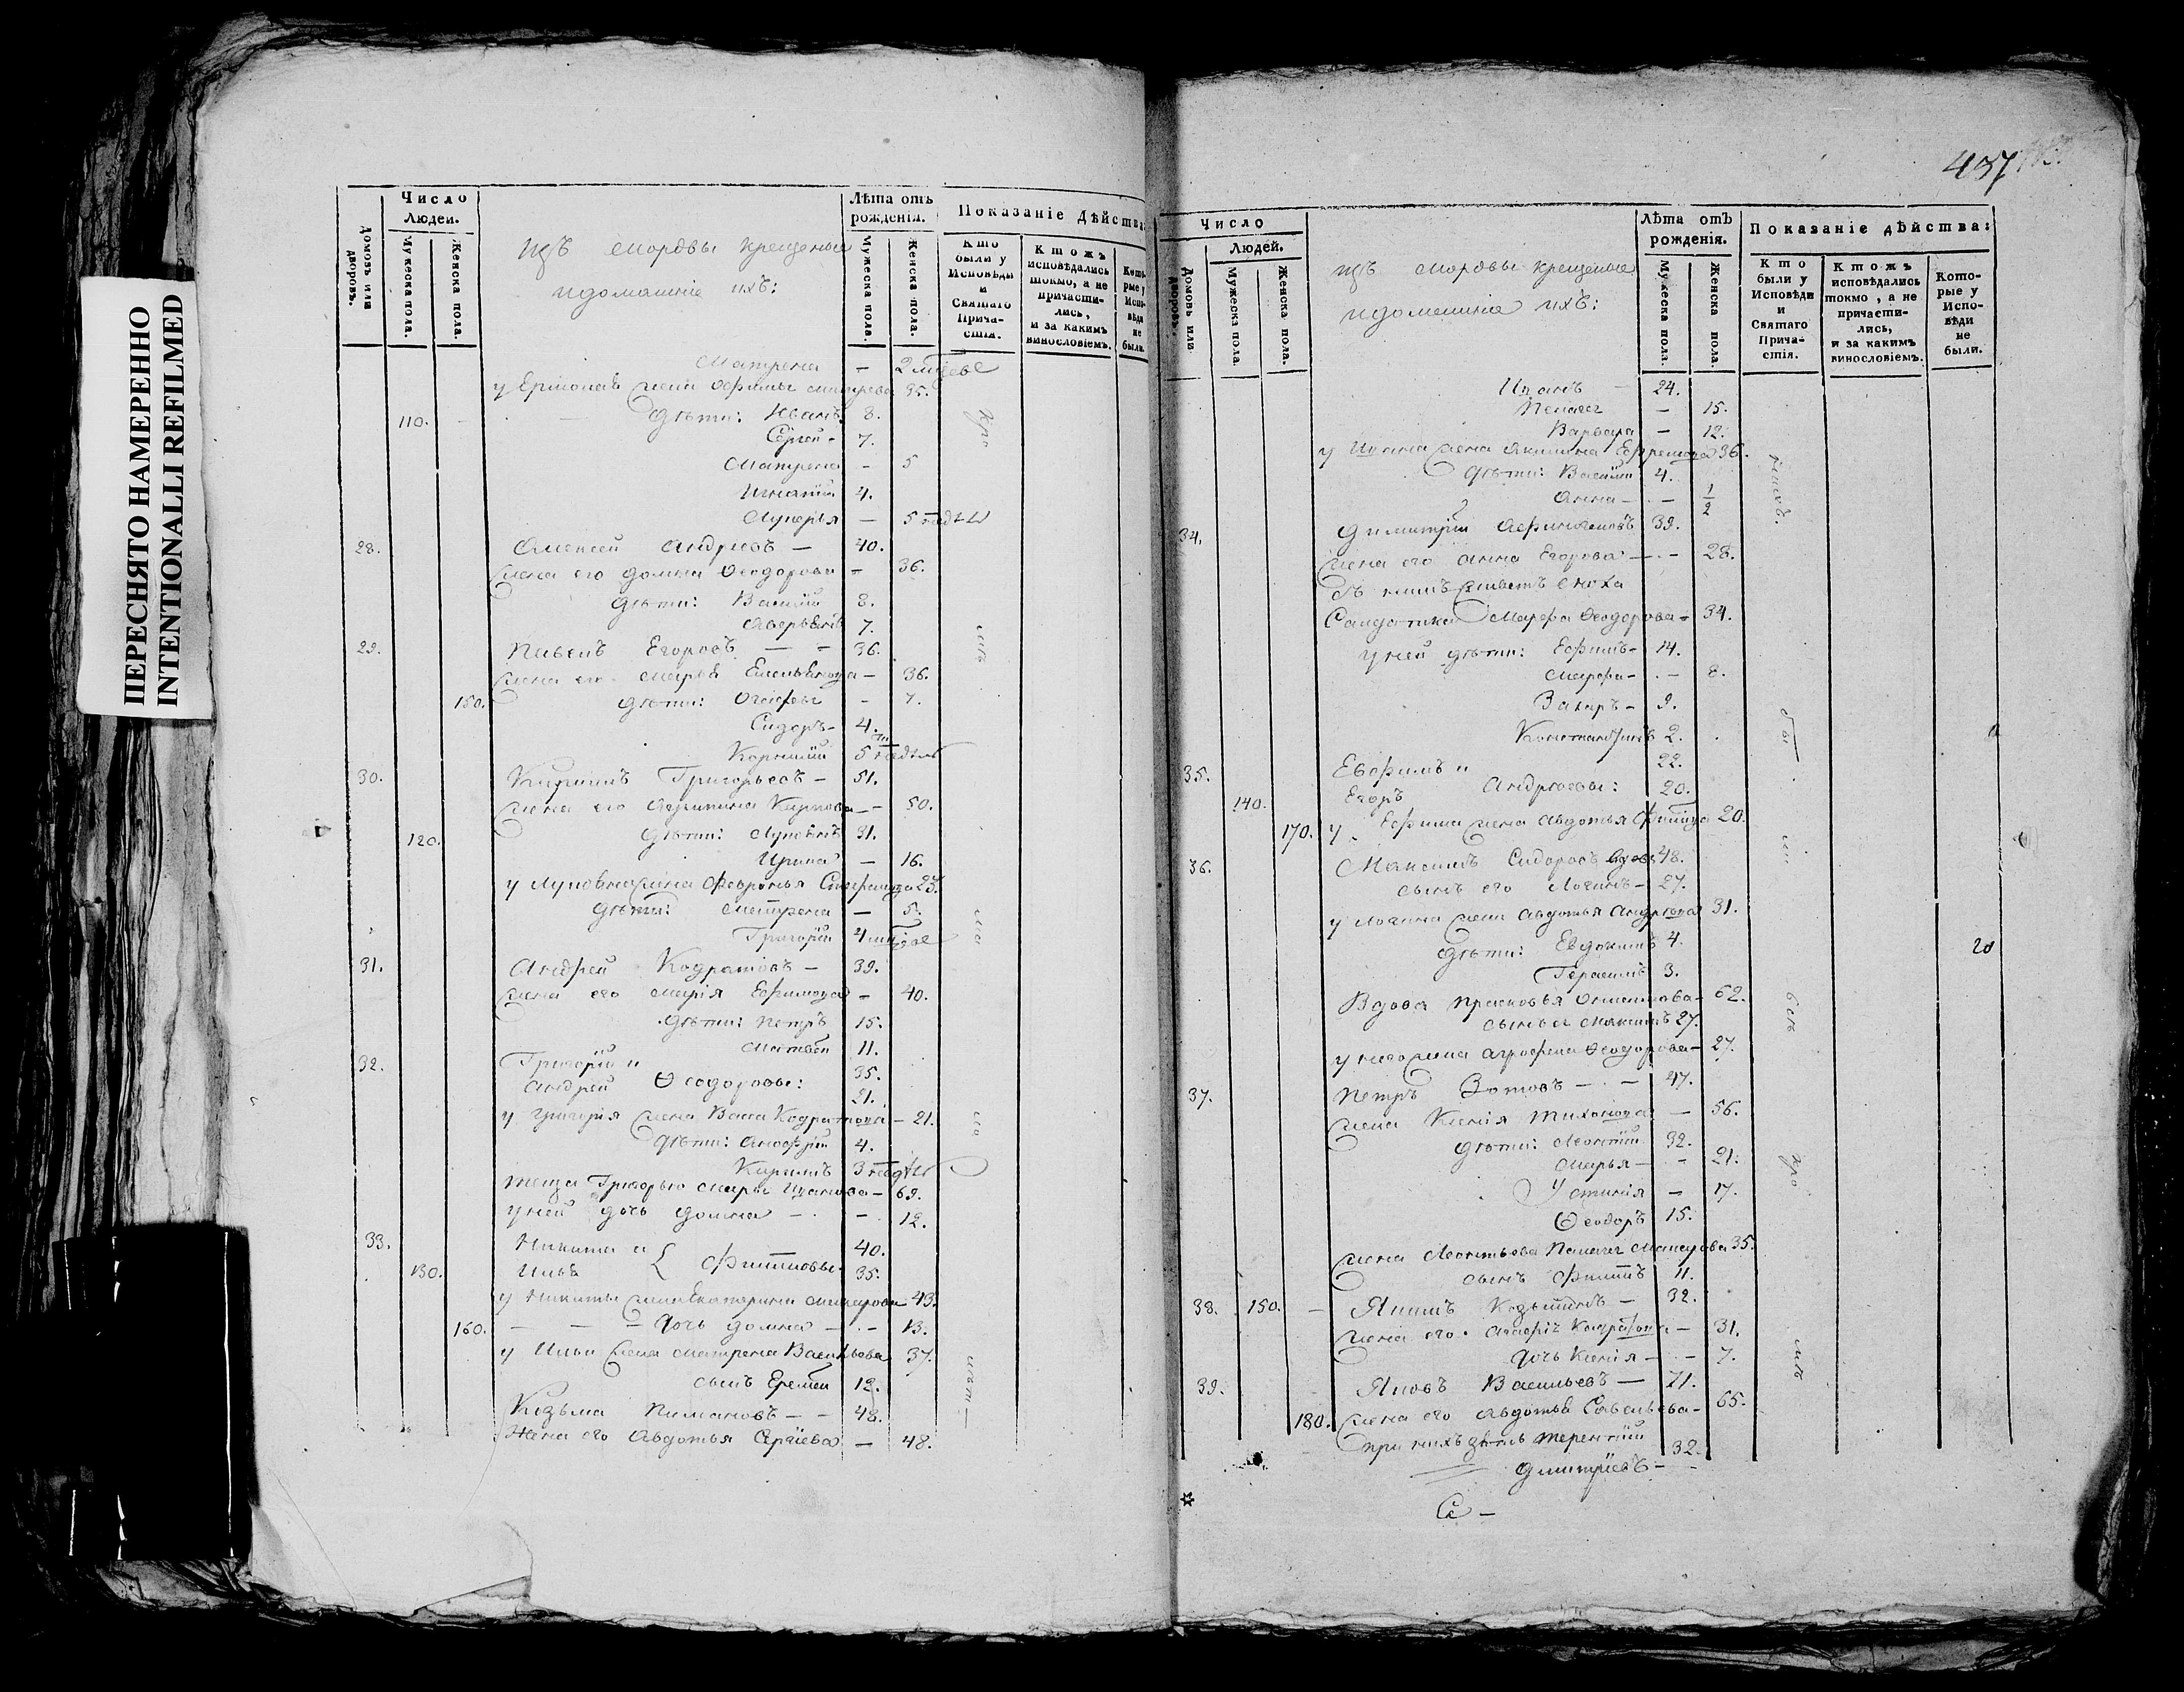 ПЕРЕСНЯТО НАМЕРЕННО
INTENTIONALLI REFILMED
Домовъ или дворовъ.
Число
Людей.
Мужеска пола.
Женска пола.
изъ мордвы крещеные
и домашніе ихъ:
Лѣта отъ
рожденія.
Мужеска пола.
Женска пола.
Показаніе дѣйства:
Кто
были у
Исповѣди
и
Святаго
Прича-
стія.
Ктожъ
исповѣдались
токмо, а не
причасти-
лись,
и за какимъ
винословіемъ.
Кото-
рые у
Испо-
вѣди
не
были.
Матрена — 2
35.
110. дѣти: Иванъ 8.
Сергей - 7.
Матрена - 5
Игнатій 4.
Лукерья — 5
28. Алексей Андреевъ — 40.
жена его Домна Ѳеодорова - 36.
дѣти: Василій 8.
Аверьянъ 7.
29. Павелъ Егоровъ — - 36.
жена его Марья Емельянова — 36.
150. дѣти: Агафья - 7.
Сидоръ - 4.
Корнилій 5
30. Кирилъ Григорьевъ — 51.
жена его Агрипина Карпова - 50.
120. дѣти: Лукьянъ 31.
Ирина — 16.
у Лукьяна жена Февронья Стефанова 23.
дѣти: Матрена — 5.
Григорій 4
31. Андрей Кодратовъ — 39.
жена его Марія Ефимова - 40.
дѣти: Петръ 15.
Матвей 11.
32. Григорій и 35.
Андрей Ѳеодоровы: 21.
у Григорія жена Васса Кодратова — 21.
дѣти: 4.
Кирилъ 3
теща Григорью Марья Иванова — 69.
у ней дочь Домна — - 12.
33. Никита и 40.
130. Илья Филиповы. 35.
у Никиты жена Екатерина 43.
160. — — — дочь Домна — - 13.
у Ильи жена Матрена Васильева 37.
сынъ Еремей 12.
Козьма Пимановъ — - 48.
Жена его Авдотья Сергіева — 48.
437
Домовъ или дворовъ.
Число
Людей.
Мужеска пола.
Женска пола.
изъ мордвы крещеные
и домашніе ихъ:
Лѣта отъ
рожденія.
Мужеска пола.
Женска пола.
Показаніе дѣйства:
Кто
были у
Исповѣди
и
Святаго
Прича-
стія.
Ктожъ
исповѣдались
токмо, а не
причасти-
лись,
и за какимъ
винословіемъ.
Кото-
рые у
Испо-
вѣди
не
были.
Иванъ — 24.
Пелагея — 15.
Варвара — 12.
у Ивана жена Акилина Ефремова 36.
дѣти: Василій 4.
Анна — - 1/2
34. Димитрій 39.
жена его Анна Егорова — - 28.
съ нимъ живетъ сноха
Салдатка Марфа Ѳеодорова - 34.
у ней дѣти: Ефимъ - 14.
Марфа - - 8.
Захаръ - 9.
Константинъ 2.
35. Евфимъ и 22.
140. Егоръ Андреевы: 20.
170. у Ефима жена Авдотья 20.
36. Максимъ Сидоровъ 48.
сынъ его Логинъ - 27.
у Логина жена Авдотья Андреева 31.
дѣти: Евдокимъ 4.
Герасимъ 3.
Вдова Прасковья 62.
сынъ ея Максимъ 27.
у него жена Агрофена Ѳеодорова - 27.
37. Петръ Зотовъ — - — 47.
жена Ксенія Тихонова — 56.
дѣти: Леонтій 32.
Марья — - 21.
Устинія — 17.
Ѳеодоръ 15.
жена Леонтьева Пелагея Макарова 35.
сынъ Филипъ 11.
38. 150. Якимъ Козьминъ — 32.
жена его Агафія Кодратова — 31.
дочь Ксенія — - 7.
39. Яковъ Васильевъ — 71.
180. жена его Авдотья Савельева - 65.
при нихъ зять Терентій 32.
Дмитріевъ -